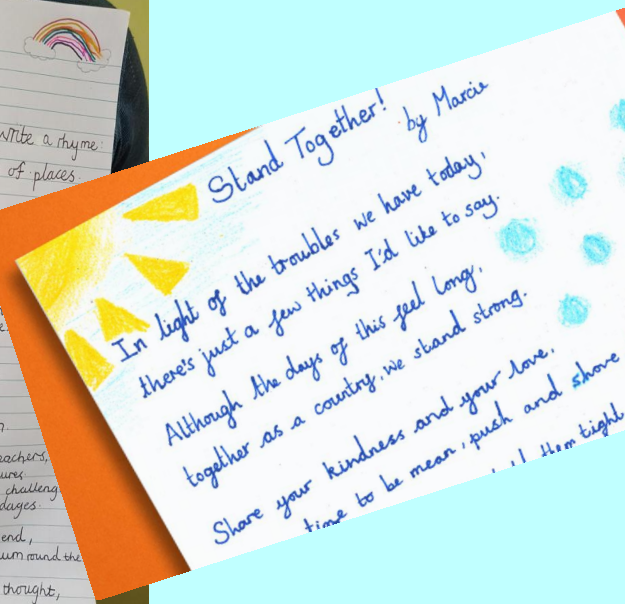 write a rhyme
of places.
eachers,
ures
challeng
dages
end,
um round the
thought,
Stand Together!
by Marcie
In light of the troubles we have today,
there's just a few things I'd like to say.
Although the days of this feel long,
together as a country, we stand strong.
Share your kindness and your love,
time to be mean, push and shove
them tight